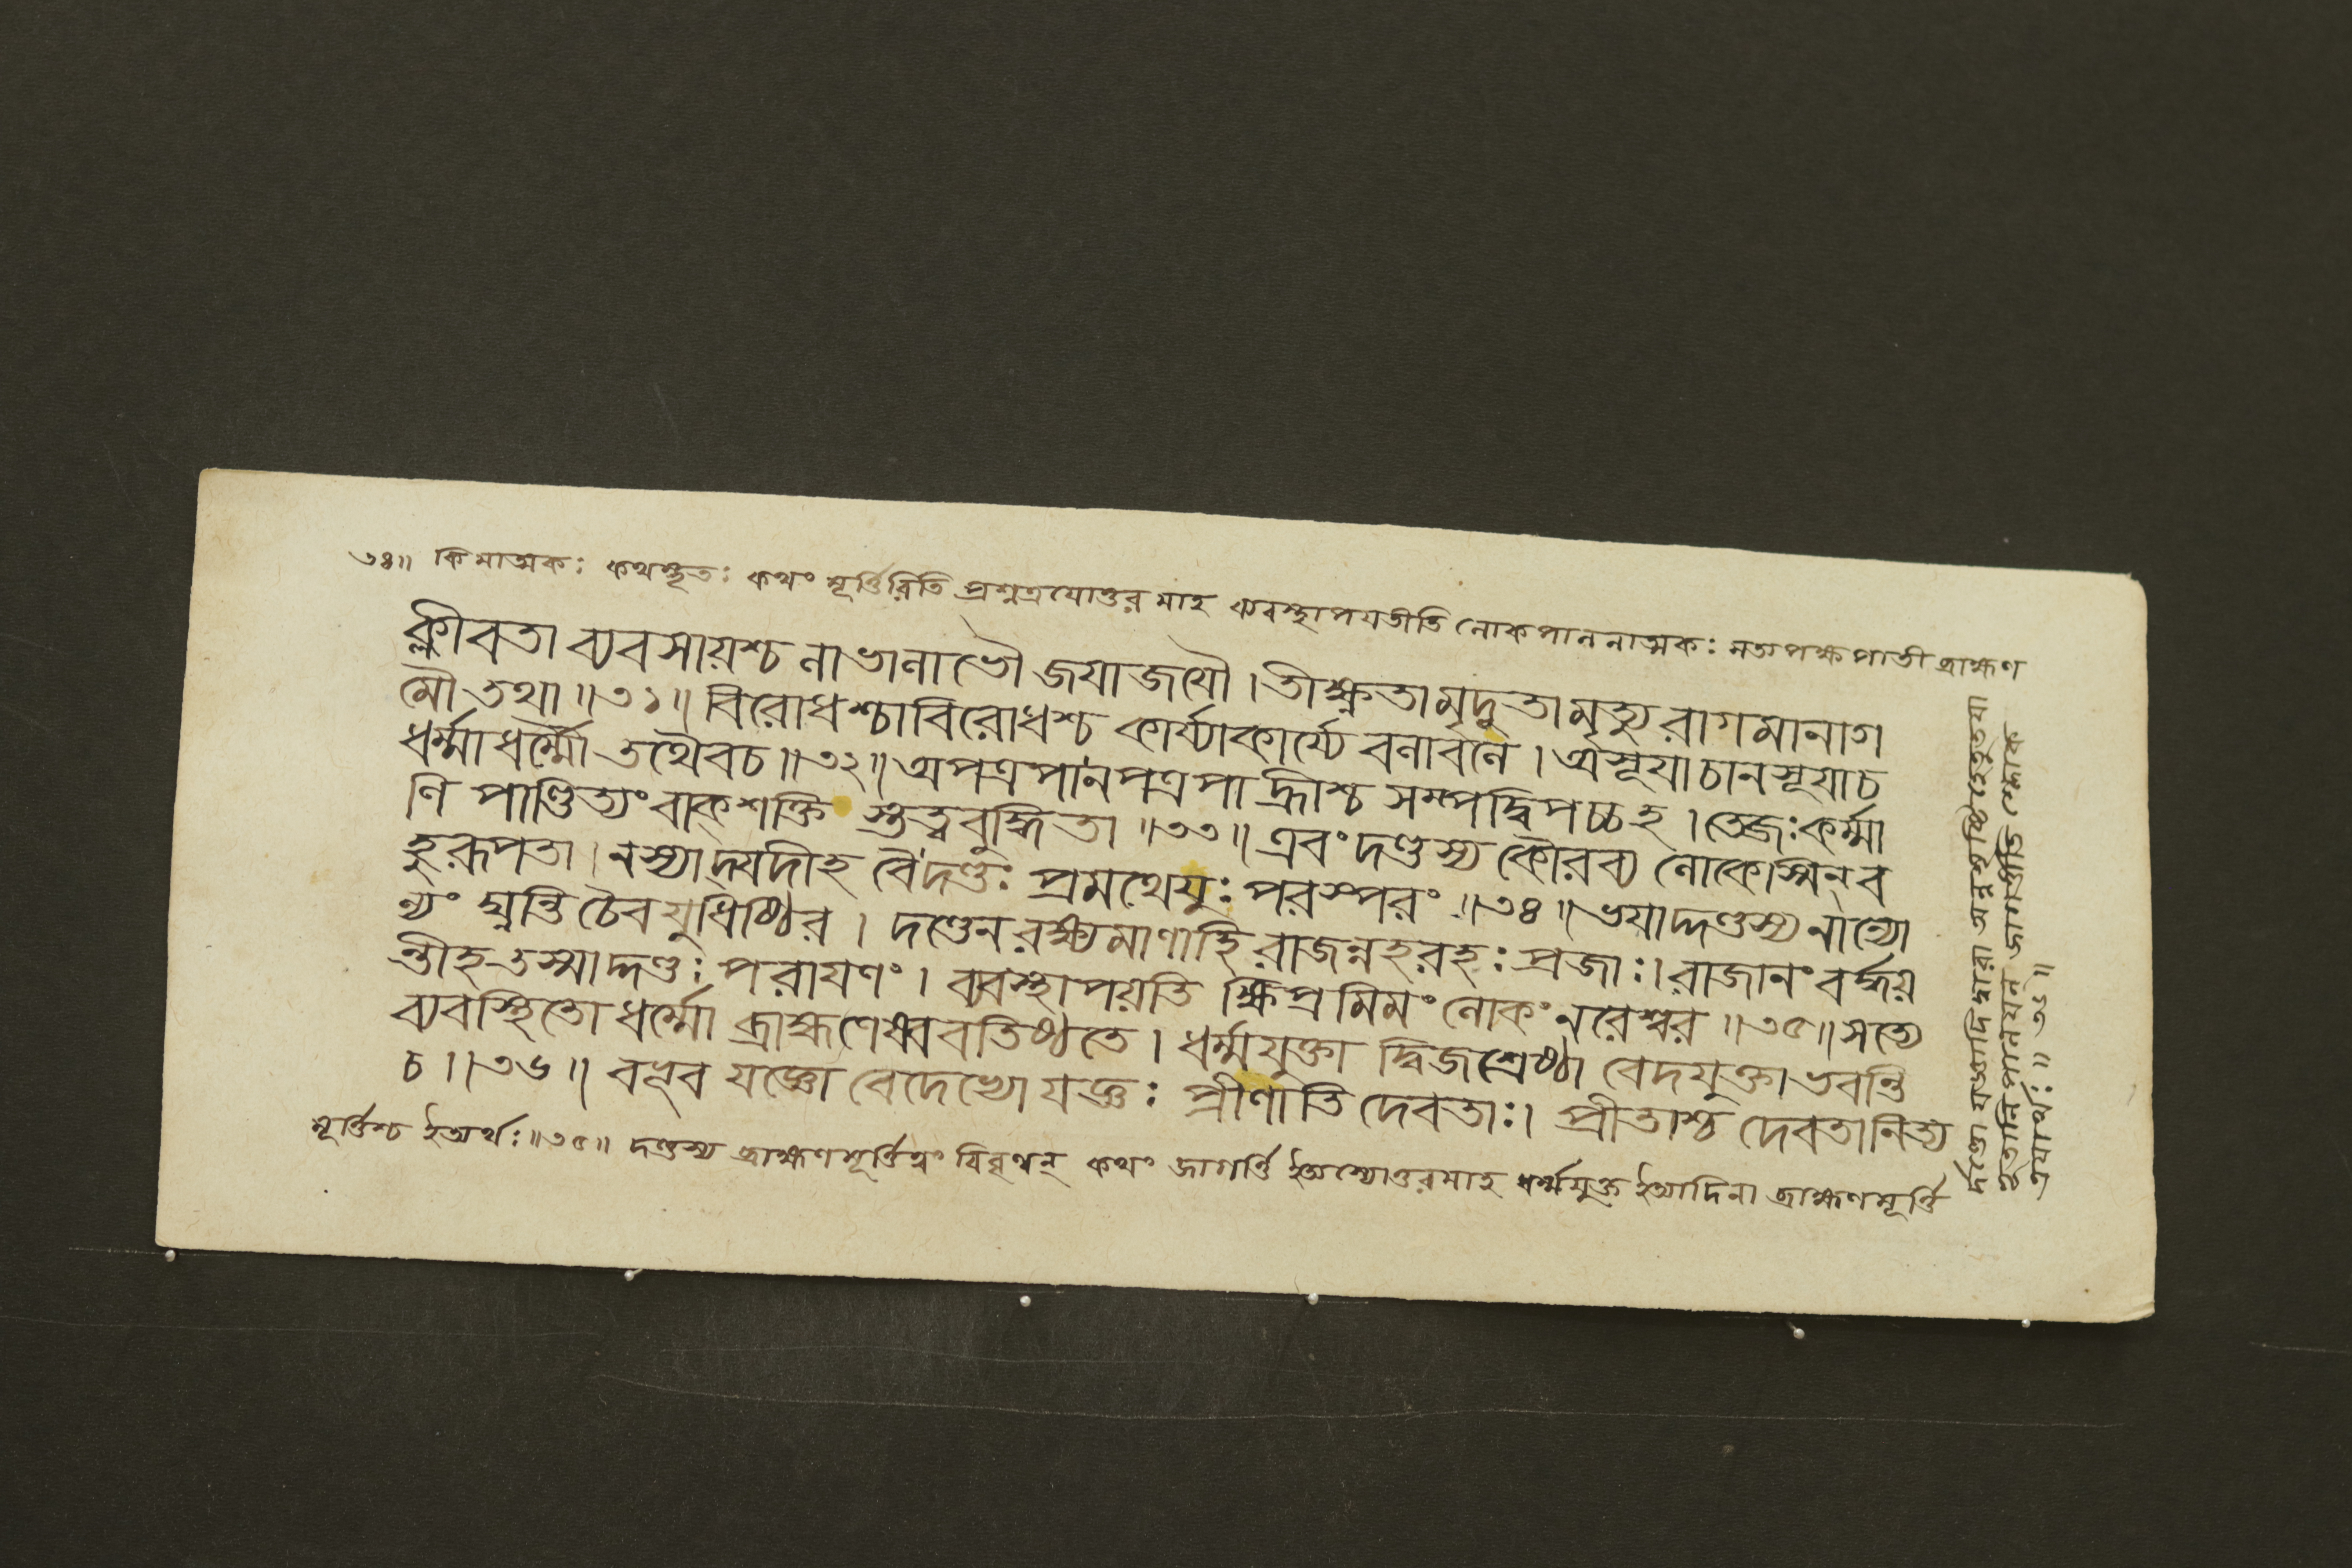 ৩৪॥ কিমাত্মকঃ কথম্ভূতঃ কথং মূর্ত্তিরিতি প্রশ্নত্রযোত্তরমাহ ব্যবস্থাপযতীতি লোকপালনাত্মকঃ সত্যপক্ষপাতী ব্রাহ্মণ
ক্লীবতা ব্যবসায়শ্চ লাভালাভৌ জযাজযৌ । তীক্ষ্ণতামৃদুতামৃত্যুরাগমানাগ
মৌ তথা ॥৩১॥ বিরোধশ্চাবিরোধশ্চ কার্য্যাকার্য্যে বলাবলে । অসূযাচানসূযাচ
ধর্ম্মাধর্ম্মৌ তথৈবচ ॥৩২॥ অপত্রপানপত্রপা হ্রীশ্চ সম্পদ্বিপচ্চহ । তেজঃকর্ম্মা
ণি পাণ্ডিত্যং বাক্শক্তি স্তত্ত্ববুদ্ধিতা ॥৩৩॥ এবং দণ্ডস্য কৌরব্য লোকেস্মিন্ ব
হুরূপতা । নস্যাদ্যদীহ বৈ দণ্ডঃ প্রমথেযুঃ পরস্পরং ॥৩৪॥ ভযাদ্দণ্ডস্য নান্যো
ন্যং ঘ্নন্তি চৈব যুধিষ্ঠির । দণ্ডেন রক্ষ্যমাণাহি রাজন্নহরহঃ প্রজাঃ । রাজানং বর্দ্ধয়
ন্তীহ তস্মাদ্দণ্ডঃ পরাযণং । ব্যবস্থাপয়তি ক্ষিপ্রমিমং লোকং নরেশ্বর ॥৩৫॥ সত্যে
ব্যবস্থিতো ধর্ম্মো ব্রাহ্মণেষ্ববতিষ্ঠতে । ধর্ম্মযুক্তা দ্বিজশ্রেষ্ঠা বেদযুক্তা ভবন্তি
চ ॥৩৬॥ বভূব যজ্ঞো বেদেভ্যো যজ্ঞঃ প্রীণাতি দেবতাঃ । প্রীতাশ্চ দেবতানিত্য
মূর্ত্তিশ্চ ইত্যর্থঃ ॥৩৫॥ দণ্ডস্য ব্রাহ্মণমূর্ত্তিত্বং বিবৃণ্বন্ কথং জাগর্ত্তি ইত্যস্যোত্তরমাহ ধর্ম্মযুক্ত ইত্যাদিনা ব্রাহ্মণমূর্ত্তি
র্দণ্ডো যজ্ঞাদিদ্বারা অন্নসৃষ্টিহেতুতযা
ভূতানি পালযন্ জাগর্ত্তীতি শ্লোক
ত্রযার্থঃ ॥ ৩৬ ॥